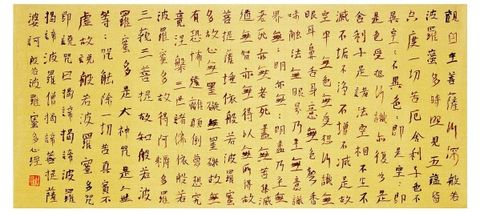 觀自在菩薩行深般若
波羅蜜多時照見五蘊皆
空度一切苦厄舍利子色不
異空空不異色色即是空空即
是色受想行識亦復如是
舍利子是諸法空相不生不
滅不垢不淨不增不減是故
空中無色無受想行識無
眼耳鼻舌身意無色聲香
味觸法無眼界乃至無意識
界無無明亦無無明盡乃至無
老死亦無老死盡無苦集滅
道無智亦無得以無所得故
菩提薩埵依般若波羅蜜
多故心無罣礙無罣礙故無
有恐怖遠離顛倒夢想究
竟涅槃三世諸佛依般若
波羅蜜多故得阿耨多羅
三藐三菩提故知般若波
羅蜜多是大神咒是無
等等咒能除一切苦真實不
虛故說般若波羅蜜多咒
即說咒曰揭諦揭諦波羅
揭諦波羅僧揭諦菩提薩
婆訶 般若波羅蜜多心經